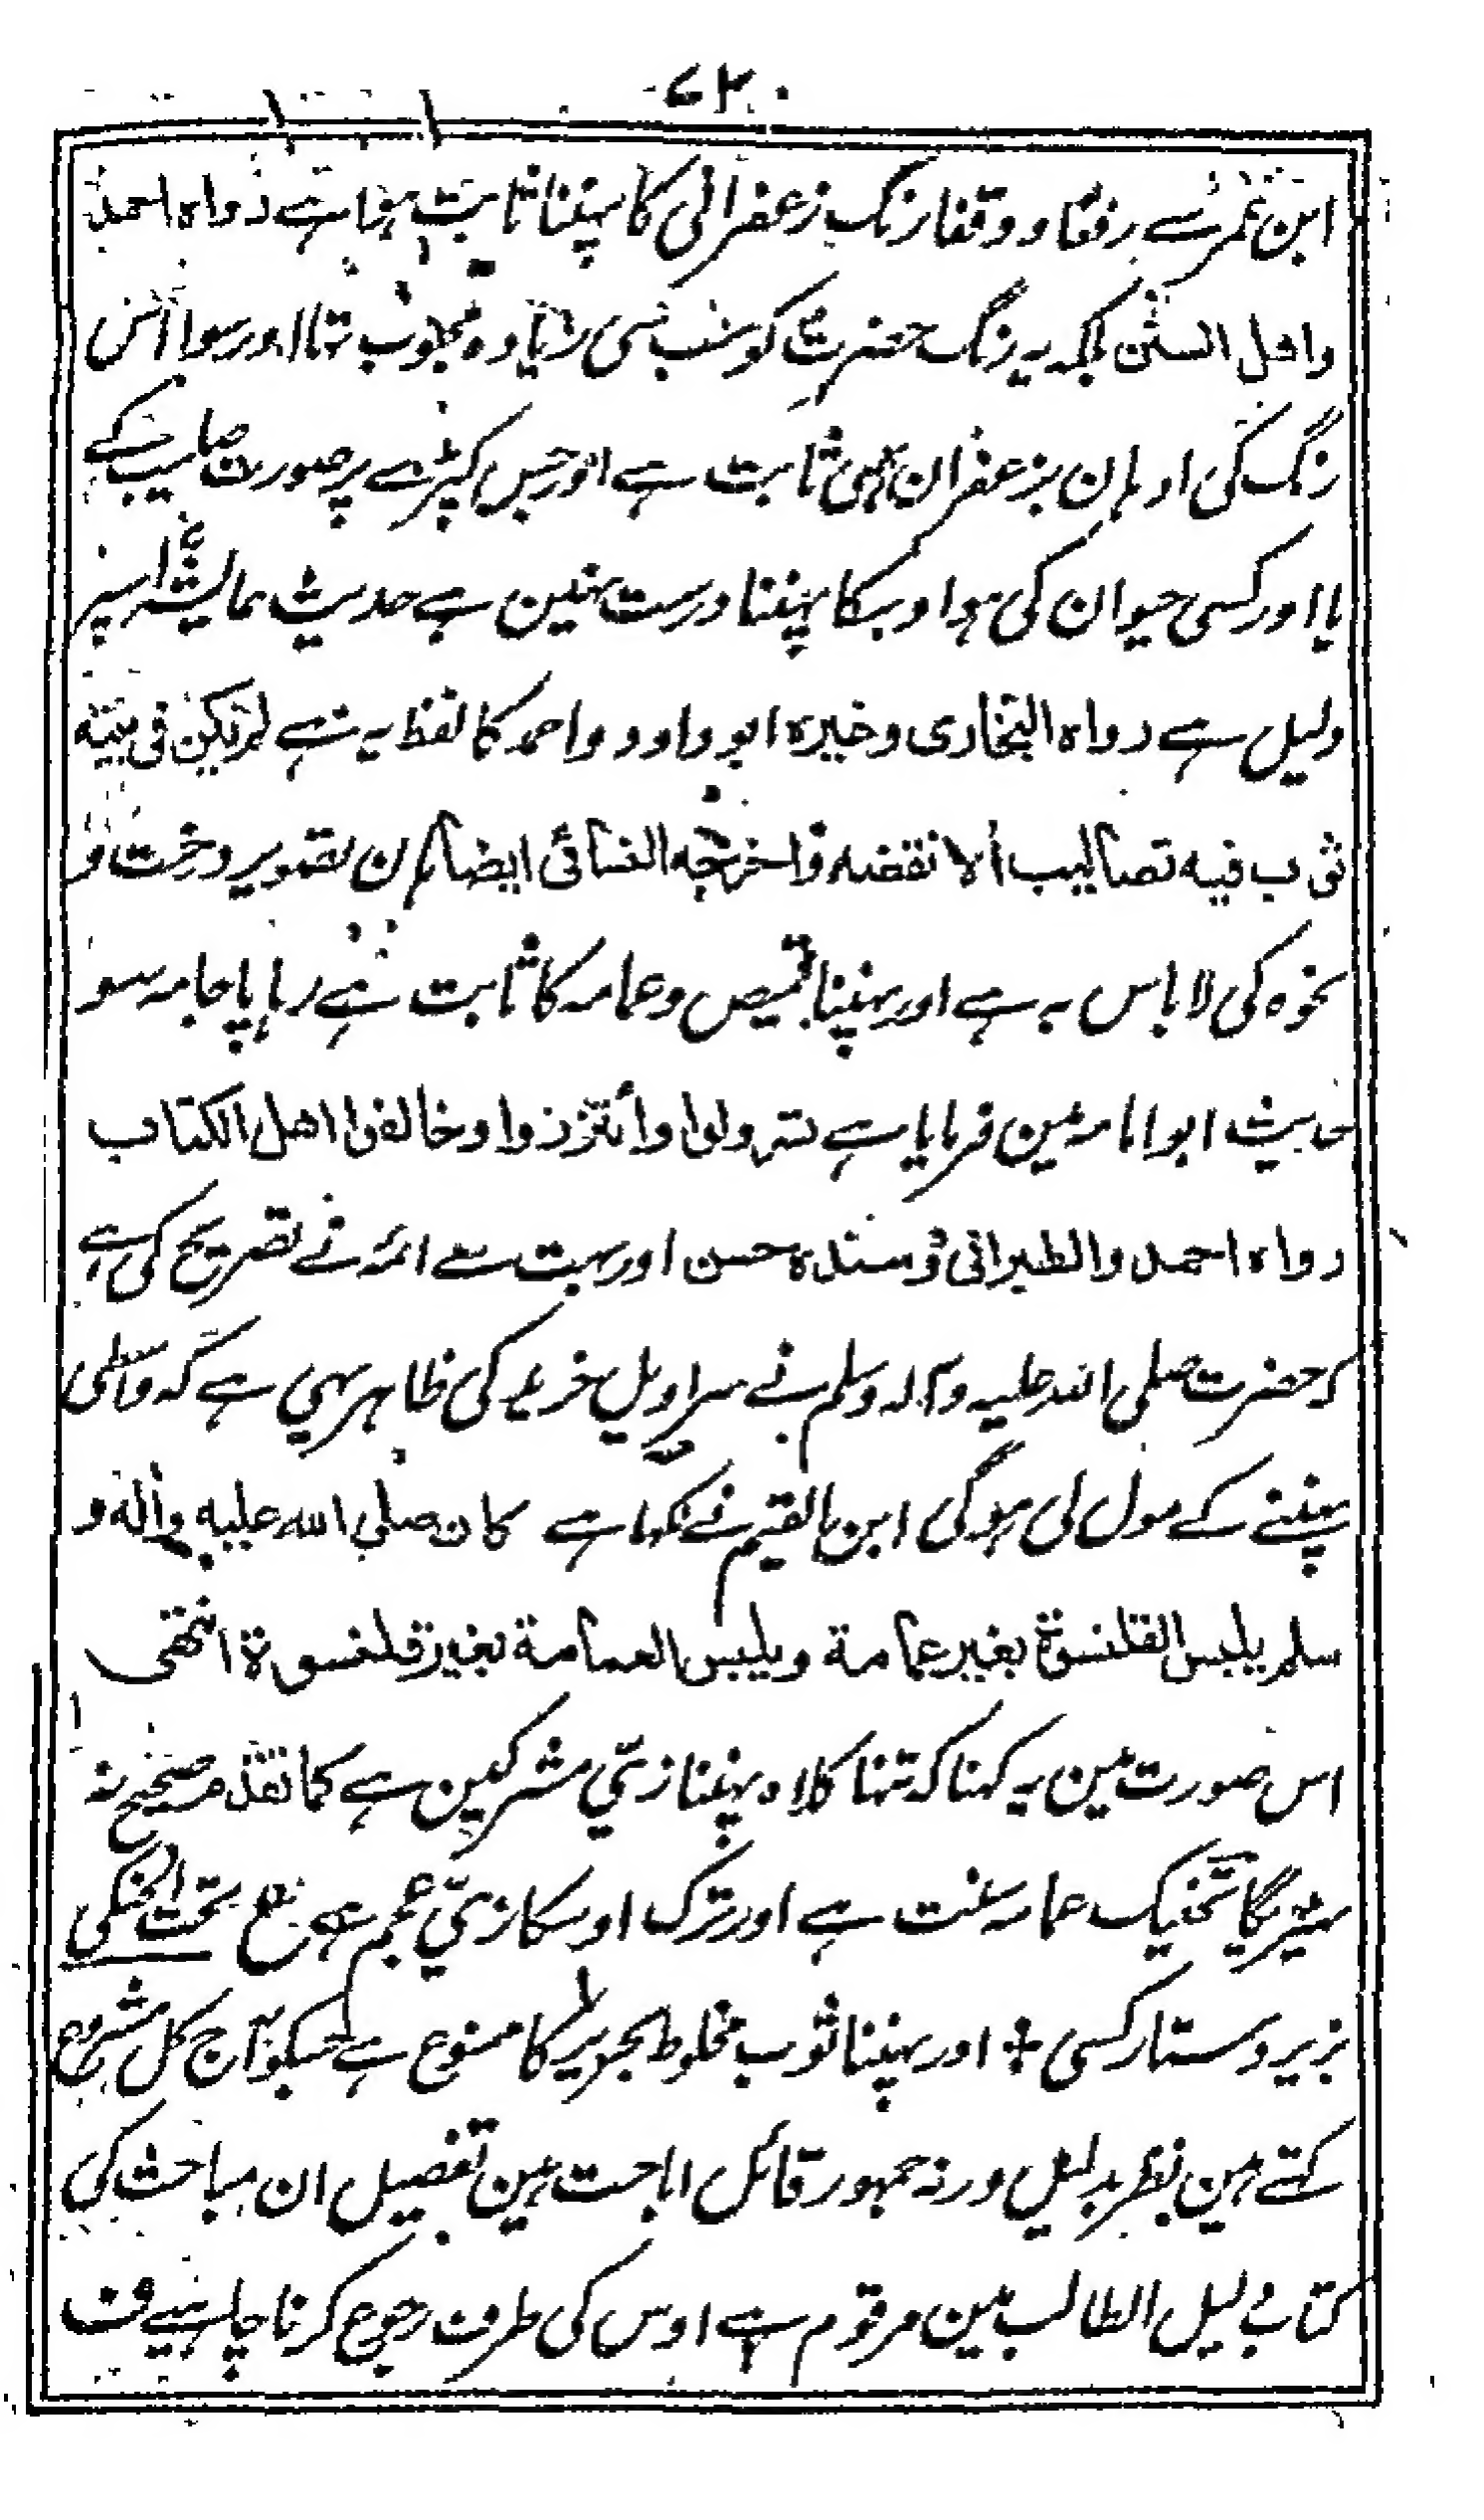 ابن عمر سے رفعا و وقفا رنگ زعفرانی کا پہننا ثابت ہوا ہے رواہ احمد
واهل السنن بلکہ یہ رنگ حضرت کو سب سی زیادہ محبوب تہا اور سوا اس
رنگ کی ادہان بزعفران بہی ثابت ہے اور جس کپڑے پر صورت صلیب کے
یا اور کسی حیوان کی ہو اوسکا پہننا درست نہین ہے حدیث عایشہ اسپر
دلیل ہے رواہ البخاری وغیرہ ابو داود واحمد کا لفظ یہ ہے لم یکن فی بیته
ثوب فیه تصالیب الا نقضه واخرجه النسائی ایضا ہان تصویر درخت و
نحوہ کی لا باس بہ ہے اور پہننا قمیص وعمامہ کا ثابت ہے رہا پاجامہ سو
حدیث ابو امامہ مین فرمایا ہے تسرولوا وأتزروا وخالفوا اهل الکتاب
رواه احمد والطبرانی وسنده حسن اور بہت سے ائمہ نے تصریح کی ہے
کہ حضرت صلی اللہ علیہ وآلہ وسلم نے سراویل خرید کی ظاہر یہی ہے کہ واسطی
پہننے کے مول لی ہوگی ابن القیم نے کہا ہے کان صلی الله علیه وآله و
سلم یلبس القلنسوة بغیر عمامة ویلبس العمامة بغیر قلنسوة انتهی
اس صورت مین یہ کہنا کہ تنہا کلاہ پہننا زیّ مشرکین ہے کما تقدم صحیح نہ
ٹہیریگا تحنیک عمامہ سنت ہے اور ترک اوسکا زیّ عجم ہے ع تحت الحنکی
بزیر دستار کسی + اور پہننا ثوب مخلوط بحریر کا ممنوع ہے جسکو آج کل مشروع
کہتے ہین بنظر بدلیل ورنہ جمہور قائل اباحت ہین تفصیل ان مباحث کی
کتاب دلیل الطالب مین مرقوم ہے اوس کی طرف رجوع کرنا چاہیے ف